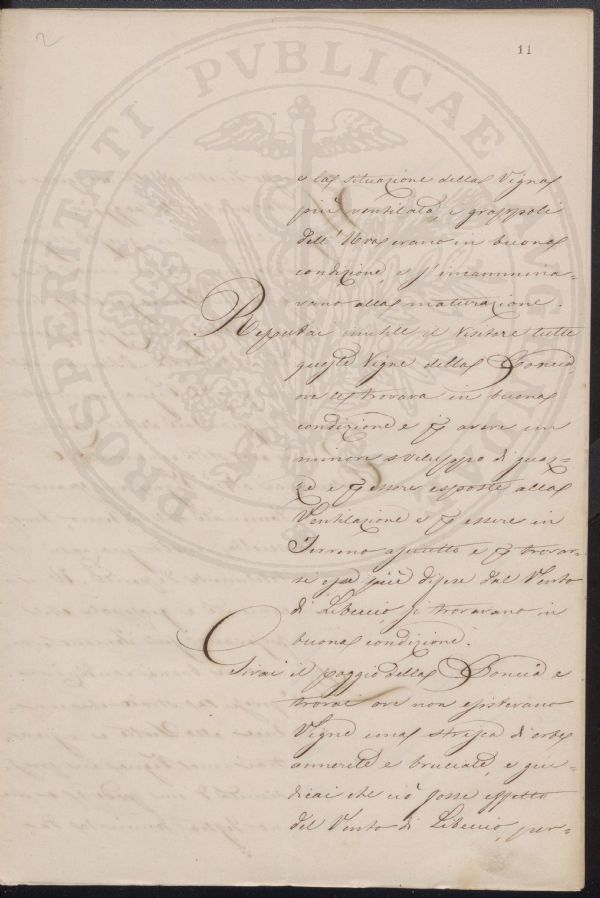 2
11
PROSPERITATI PVBLICAE AVGENDAE
e la situazione della Vigna
più ventilata, i grappoli
dell'Uva erano in buona
condizione, e s'incammina-
vano alla maturazione.
Reputai inutile il Visitare tutte
queste Vigne della
trovava in buona
condizione e p avere un
minore sviluppo di
e p essere esposte alla
Ventilazione e p essere in
Terreno asciutto e p trovar-
se più difese dal Vento
di Libeccio, si trovavano in
buona condizione.
Girai il poggio della e
trovai ove non esistevano
Vigne una striscia di erbe
annerite e bruciate, e giu-
dicai che ciò fosse effetto
del Vento di Libeccio, per-